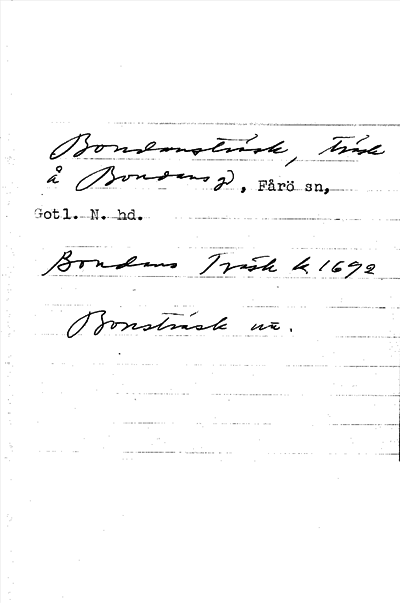 Bondansträsk, träsk
å Bondans gd, Fårö sn,
Gotl. N. hd.
Bondans Träsk k 1692
Bonsträsk